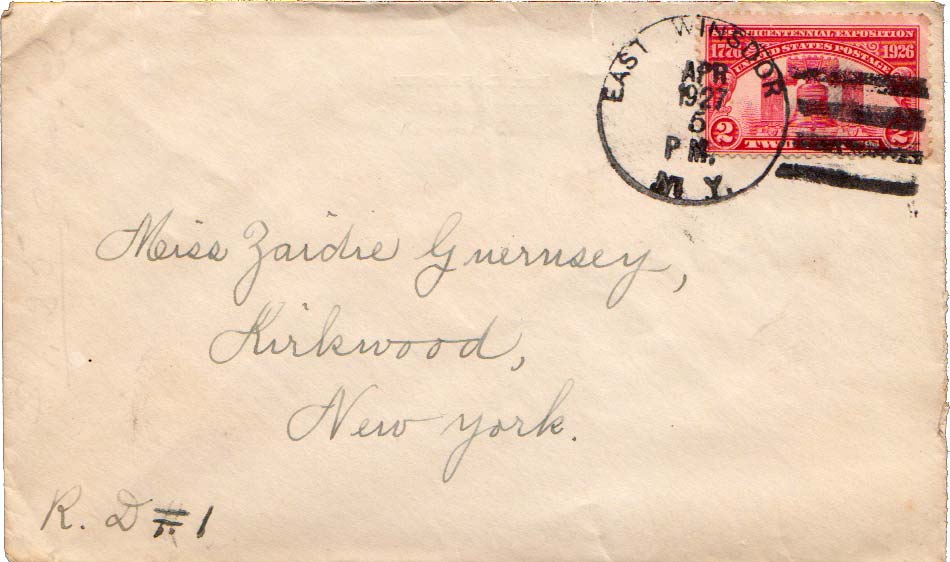 SESQUICENTENNIAL EXPOSITION
1776 UNITED STATES POSTAGE 1926
2 TWO 2
EAST WINSDOR
APR
1927
5
P M.
N Y.
Miss Zaidie Guernsey,
Kirkwood,
New York.
R. D #1